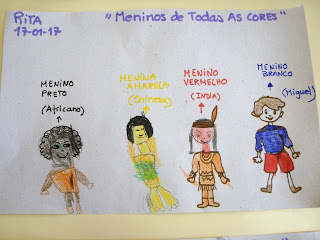 RITA
17-01-17
"Meninos de Todas As CORES"
MENINO
PRETO
(Africano)
MENINA
AMARELA
(Chinesa)
MENINO
VERMELHO
(INDIA)
MENINO
BRANCO
(Miguel)